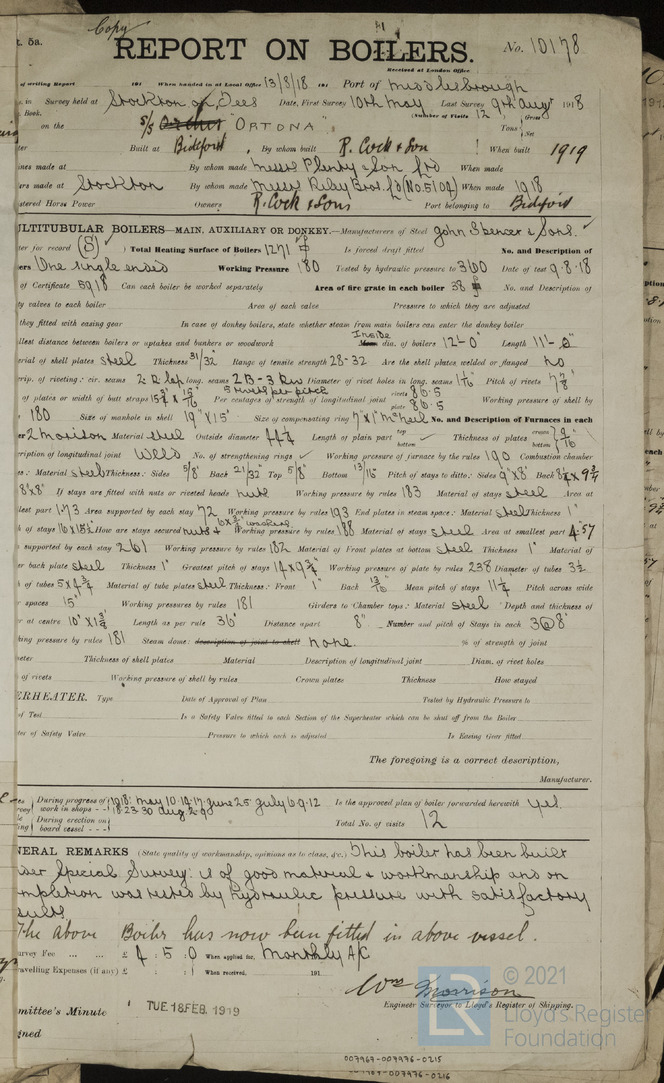 Copy
t. 5a. REPORT ON BOILERS. No. 10178
Received at London Office
of writing Report 191 When handed in at Local Office 13/8/18 191 Port of Middlesbrough
in Survey held at Stockton on Tees Date, First Survey 10th May Last Survey 9th Augt 1918
Book. (Number of Visits 12) Gross
on the S/S "ORTONA" Tons Net
Built at Bideford By whom built R. Cock & Son When built 1919
ines made at By whom made Messrs Plenty & Son Ltd When made
ers made at Stockton By whom made Messrs Riley Bros. Ld (No. 5104) When made 1918
stered Horse Power Owners R. Cock & Sons Port belonging to Bideford
ULTITUBULAR BOILERS—MAIN, AUXILIARY OR DONKEY.—Manufacturers of Steel John Spencer & Sons.
ter for record (S) Total Heating Surface of Boilers 1271 Is forced draft fitted No. and Description of
ers One single ended Working Pressure 180 Tested by hydraulic pressure to 360 Date of test 9.8.18
of Certificate 5918 Can each boiler be worked separately Area of fire grate in each boiler 38 No. and Description of
ty valves to each boiler Area of each valve Pressure to which they are adjusted
they fitted with easing gear In case of donkey boilers, state whether steam from main boilers can enter the donkey boiler
llest distance between boilers or uptakes and bunkers or woodwork Inside dia. of boilers 12'-0" Length 11'-0"
erial of shell plates steel Thickness 31/32" Range of tensile strength 28-32 Are the shell plates welded or flanged no
rip. of riveting: cir. seams 2 R lap long. seams 2 B-3 Riv Diameter of rivet holes in long. seams 1 1/16" Pitch of rivets 7 7/8"
of plates or width of butt straps 5 rivets per pitch Per centages of strength of longitudinal joint rivets 86.5 plate 86.5 Working pressure of shell by
s 180 Size of manhole in shell 19" x 15" Size of compensating ring 7" x 1" McNeil No. and Description of Furnaces in each
er 2 Morison Material steel Outside diameter Length of plain part top bottom Thickness of plates crown bottom 9/16"
cription of longitudinal joint Weld No. of strengthening rings Working pressure of furnace by the rules 190 Combustion chamber
s: Material steel Thickness: Sides 5/8" Back 21/32" Top 5/8" Bottom 13/16" Pitch of stays to ditto: Sides 9" x 8" Back 8 1/4 x 9 3/4
8" x 8" If stays are fitted with nuts or riveted heads nuts Working pressure by rules 183 Material of stays steel Area at
llest part 1.73 Area supported by each stay 72 Working pressure by rules 193 End plates in steam space: Material steel Thickness 1"
h of stays 16 x 15 1/2 How are stays secured nuts & washers Working pressure by rules 188 Material of stays steel Area at smallest part 4.57
supported by each stay 261 Working pressure by rules 182 Material of Front plates at bottom steel Thickness 1" Material of
er back plate steel Thickness 1" Greatest pitch of stays 14 x 9 3/4 Working pressure of plate by rules 238 Diameter of tubes 3 1/2
h of tubes 5 x 4 3/4 Material of tube plates steel Thickness: Front 1" Back 13/16" Mean pitch of stays 11 1/4 Pitch across wide
r spaces 15" Working pressures by rules 181 Girders to Chamber tops: Material steel Depth and thickness of
er at centre 10" x 1 3/4 Length as per rule 36" Distance apart 8" Number and pitch of Stays in each 3 @ 8"
king pressure by rules 181 Steam dome: description of joint to shell none. % of strength of joint
meter Thickness of shell plates Material Description of longitudinal joint Diam. of rivet holes
of rivets Working pressure of shell by rules Crown plates Thickness How stayed
ERHEATER. Type Date of Approval of Plan Tested by Hydraulic Pressure to
of Test Is a Safety Valve fitted to each Section of the Superheater which can be shut off from the Boiler
ter of Safety Valve Pressure to which each is adjusted Is Easing Gear fitted
The foregoing is a correct description,
Manufacturer.
es During progress of work in shops 1918: May 10.14.17. June 25 July 6 9.12 Is the approved plan of boiler forwarded herewith yes.
18.23.30 Aug 2.9
During erection on board vessel Total No. of visits 12
NERAL REMARKS (State quality of workmanship, opinions as to class, &c.) This boiler has been built
der Special Survey: is of good material & workmanship and on
mpletion was tested by hydraulic pressure with satisfactory
sults.
The above Boiler has now been fitted in above vessel.
urvey Fee £ 4 : 5 : 0 When applied for, Monthly A/C
ravelling Expenses (if any) £ : : When received, 191
Wm Morrison
Engineer Surveyor to Lloyd's Register of Shipping.
mmittee's Minute TUE 18 FEB. 1919
gned
LR © 2021
Lloyd's Register
Foundation
007967-007976-0215
007967-007976-0216